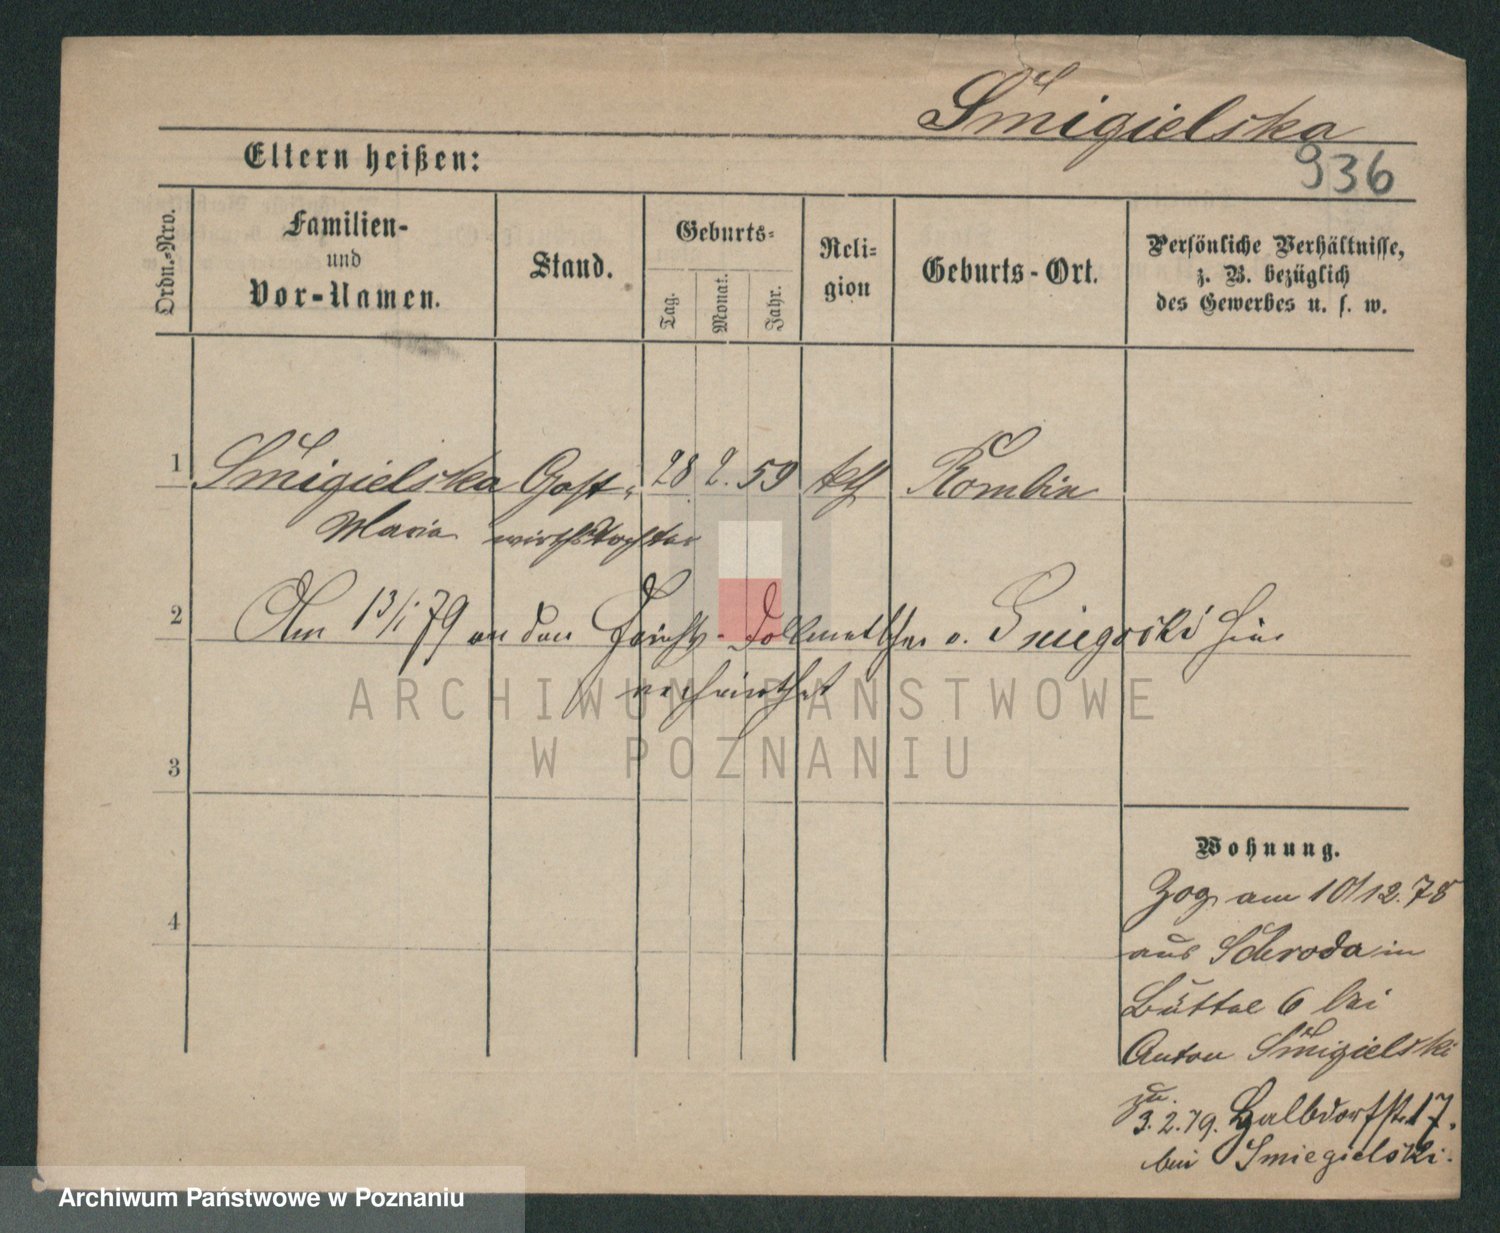 Śmigielska
936
Eltern heißen:
Ordn.-Nro.
Familien-
und
Vor-Namen.
Stand.
Geburts-
Tag.
Monat.
Jahr.
Reli-
gion
Geburts-Ort.
Persönliche Verhältnisse,
z. B. bezüglich
des Gewerbes u. s. w.
1 Śmigielska Gast- 28 2. 59 kth Rombin
Maria wirthstochter
2 Am 13/1 79 an den Gerichts-Dollmetscher v. Gniegocki hier
verheirathet
ARCHIWUM PAŃSTWOWE
W POZNANIU
3
4
Wohnung.
Zog am 10/12. 78
aus Schroda in
Büttel 6 bei
Anton Śmigielski
zu.
3. 2. 79. Halbdorfstr. 17.
bei Smiegielski.
Archiwum Państwowe w Poznaniu